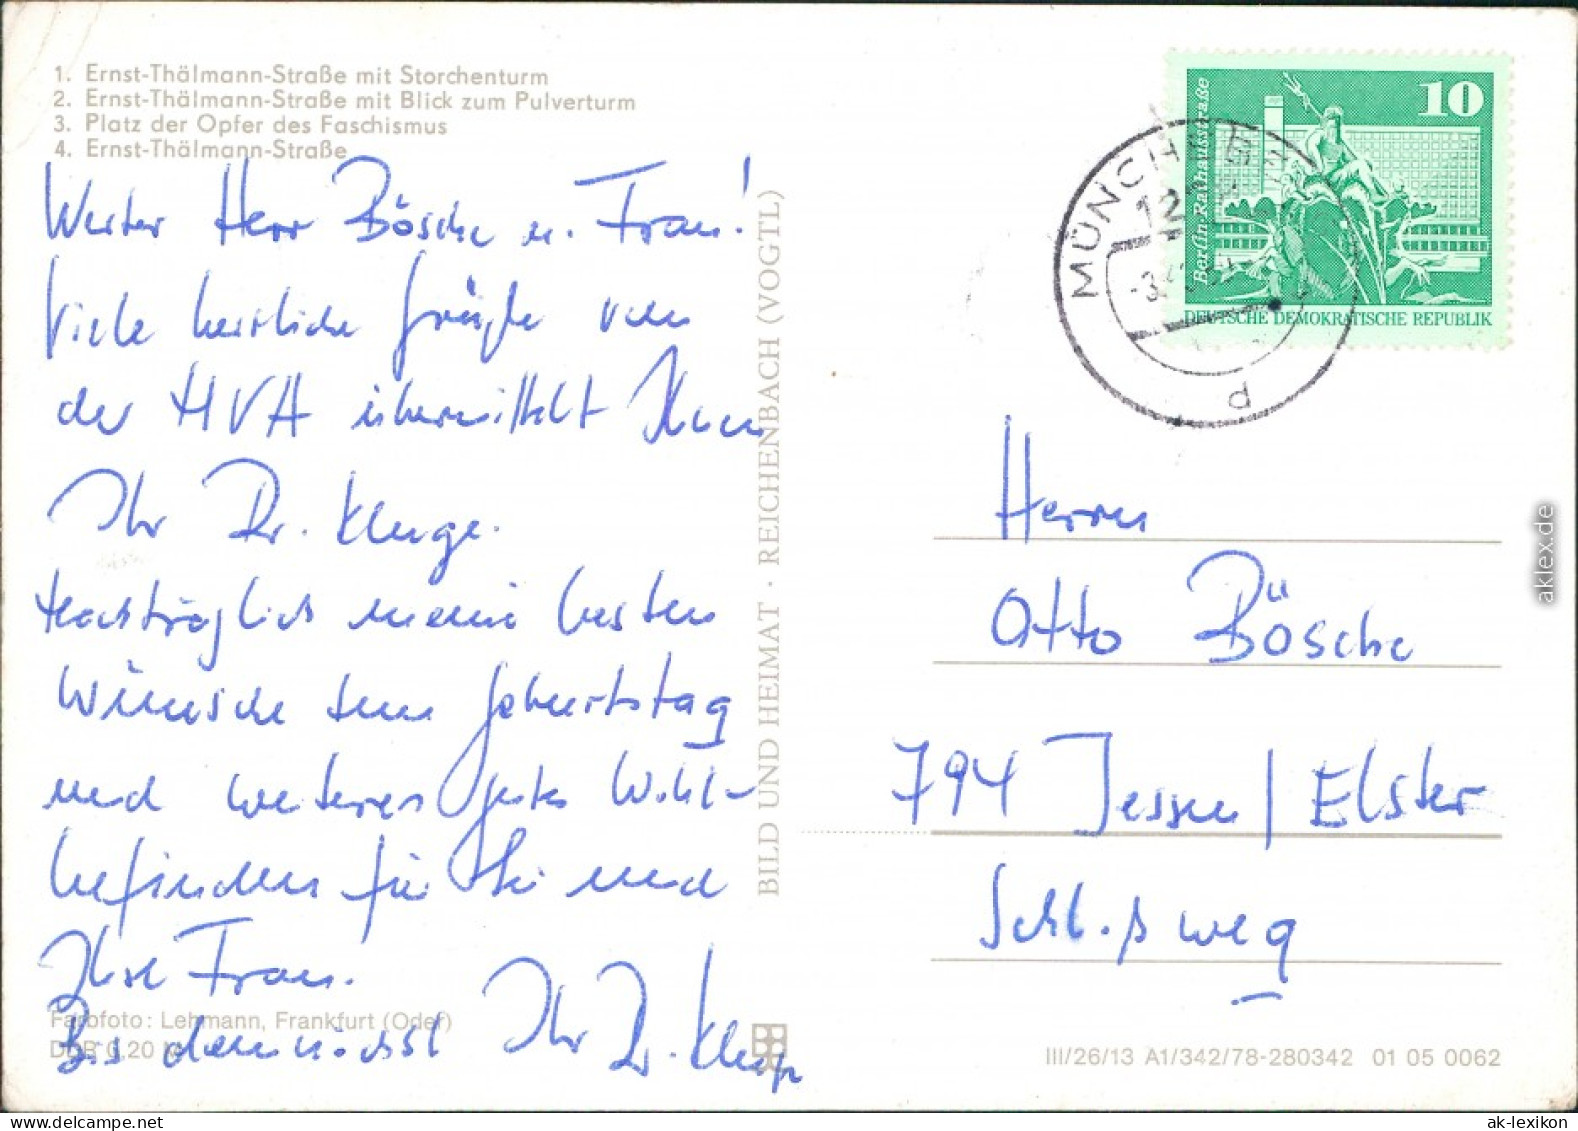 1. Ernst-Thälmann-Straße mit Storchenturm
2. Ernst-Thälmann-Straße mit Blick zum Pulverturm
3. Platz der Opfer des Faschismus
4. Ernst-Thälmann-Straße
Werter Herr Bösche u. Frau!
Viele herzliche Grüße von
der HVA übermittelt Ihnen
Ihr Dr. Kluge.
Nachträglich meine besten
Wünsche zum Geburtstag
und weiteres gutes Wohl-
befinden für Sie und
Ihre Frau.
Bis demnächst Ihr Dr. Kluge
Farbfoto: Lehmann, Frankfurt (Oder)
DDR 0,20 M
BILD UND HEIMAT · REICHENBACH (VOGTL)
10
Berlin-Rathausstraße
DEUTSCHE DEMOKRATISCHE REPUBLIK
MÜNCHEBERG
Herrn
Otto Bösche
794 Jessen/Elster
Schl.ßweg
III/26/13 A1/342/78-280342 01 05 0062
aklex.de
ak-lexikon